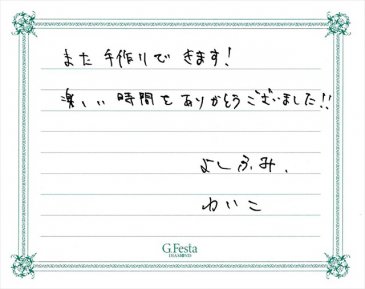 また手作りできます!
楽しい時間をありがとうございました!!
よしふみ、
れいこ
G.Festa
DIAMOND